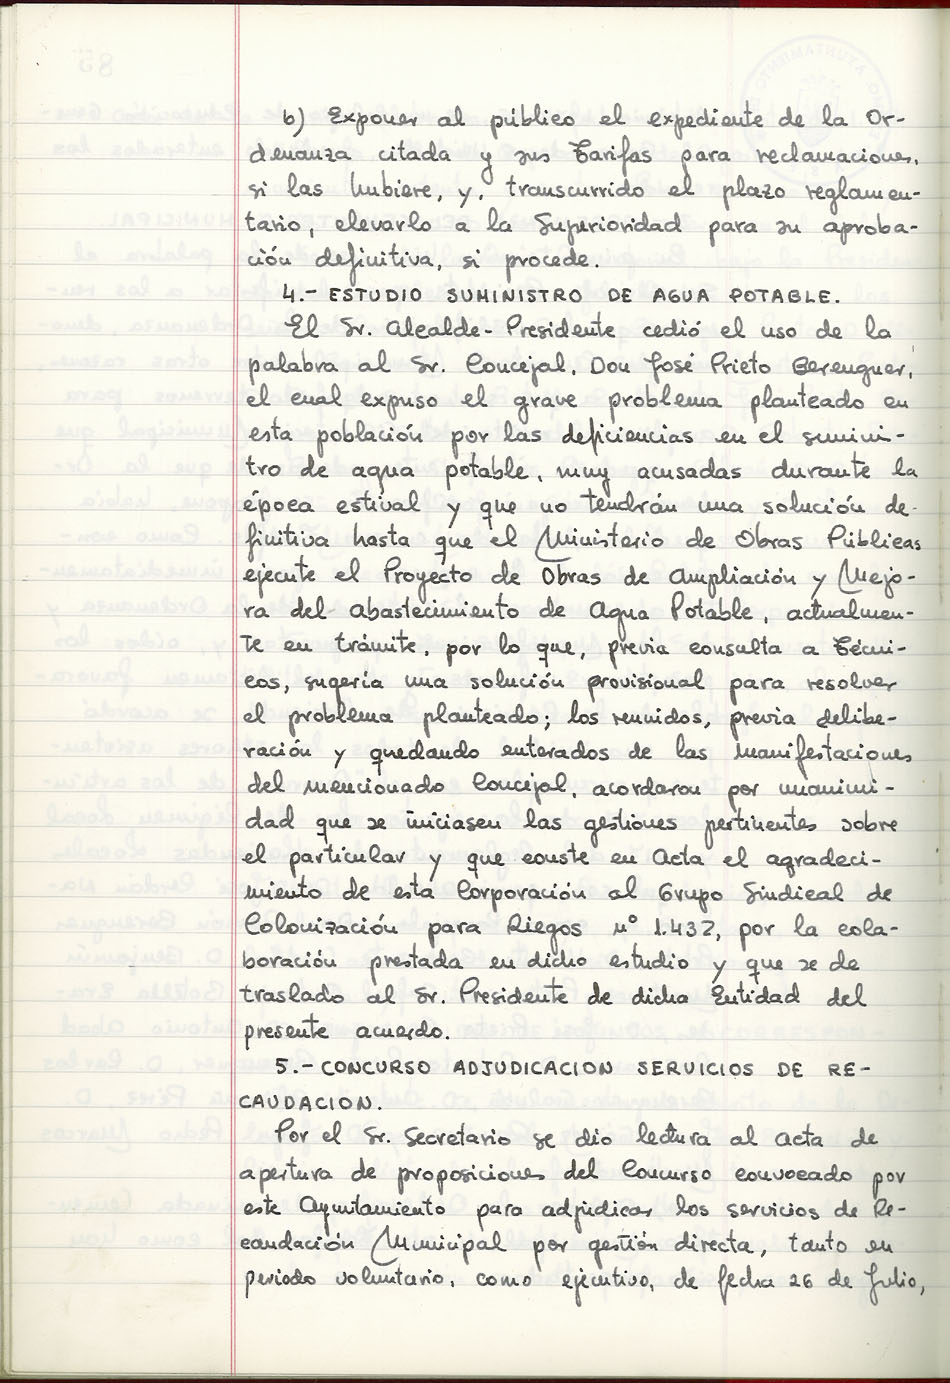 b) Exponer al público el expediente de la Or-
denanza citada y sus Tarifas para reclamaciones,
si las hubiere, y, transcurrido el plazo reglamen-
tario, elevarlo a la Superioridad para su aproba-
ción definitiva, si procede.
4.- ESTUDIO SUMINISTRO DE AGUA POTABLE.
El Sr. Alcalde-Presidente cedió el uso de la
palabra al Sr. Concejal, Don José Prieto Berenguer,
el cual expuso el grave problema planteado en
esta población por las deficiencias en el sumini-
tro de agua potable, muy acusadas durante la
época estival y que no tendrán una solución de-
finitiva hasta que el Ministerio de Obras Públicas
ejecute el Proyecto de Obras de Ampliación y Mejo-
ra del abastecimiento de Agua Potable, actualmen-
te en trámite, por lo que, previa consulta a Técni-
cos, sugería una solución provisional para resolver
el problema planteado; los reunidos, previa delibe-
ración y quedando enterados de las manifestaciones
del mencionado Concejal, acordaron por unanimi-
dad que se iniciasen las gestiones pertinentes sobre
el particular y que conste en Acta el agradeci-
miento de esta Corporación al Grupo Sindical de
Colonización para Riegos nº 1.432, por la cola-
boración prestada en dicho estudio y que se de
traslado al Sr. Presidente de dicha Entidad del
presente acuerdo.
5.- CONCURSO ADJUDICACION SERVICIOS DE RE-
CAUDACION.
Por el Sr. Secretario se dio lectura al acta de
apertura de proposiciones del Concurso convocado por
este Ayuntamiento para adjudicar los servicios de Re-
caudación Municipal por gestión directa, tanto en
periodo voluntario, como ejecutivo, de fecha 26 de Julio,